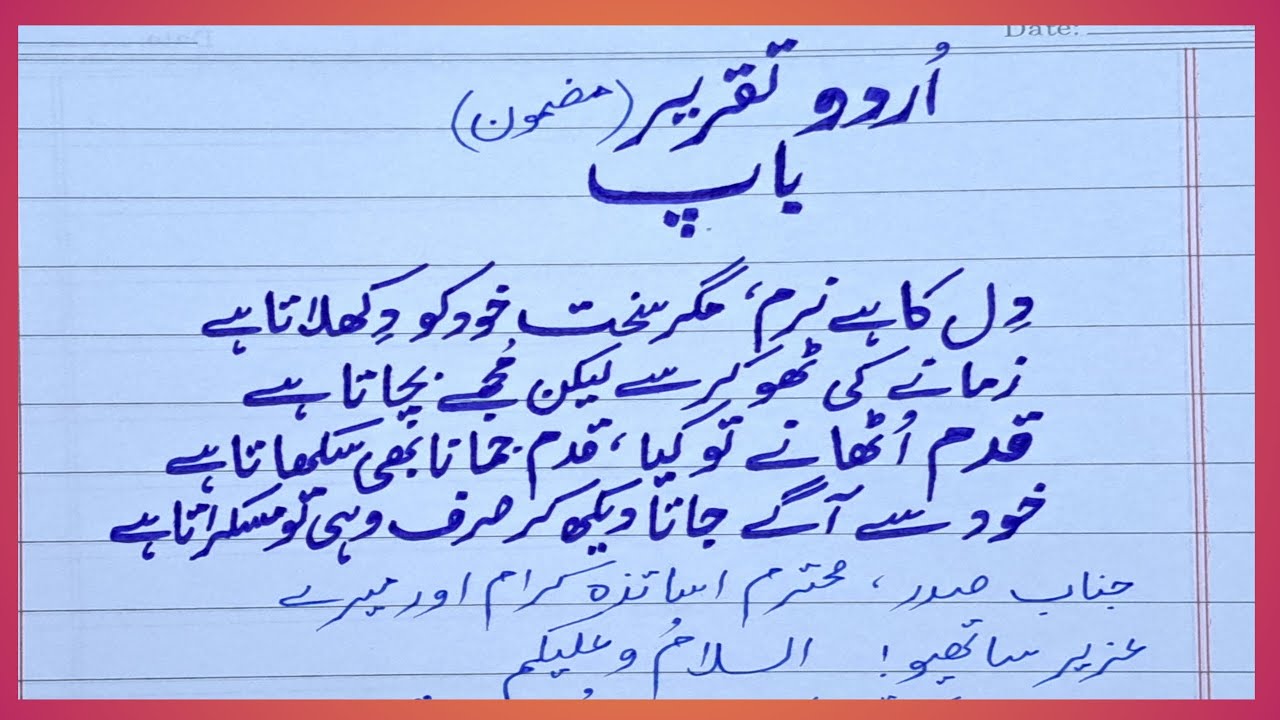 Date:
اُردو تقریر (مضمون)
باپ
دِل کا ہے نرم، مگر سخت خود کو دِکھلاتا ہے
زمانے کی ٹھوکر سے لیکن مُجھے بچاتا ہے
قدم اُٹھانے تو کیا، قدم جمانا بھی سکھاتا ہے
خود سے آگے جاتا دیکھ کر صرف وہی تو مسکراتا ہے
جناب صدر، محترم اساتذہ کرام اور میرے
عزیز ساتھیو! السلامُ وعلیکم